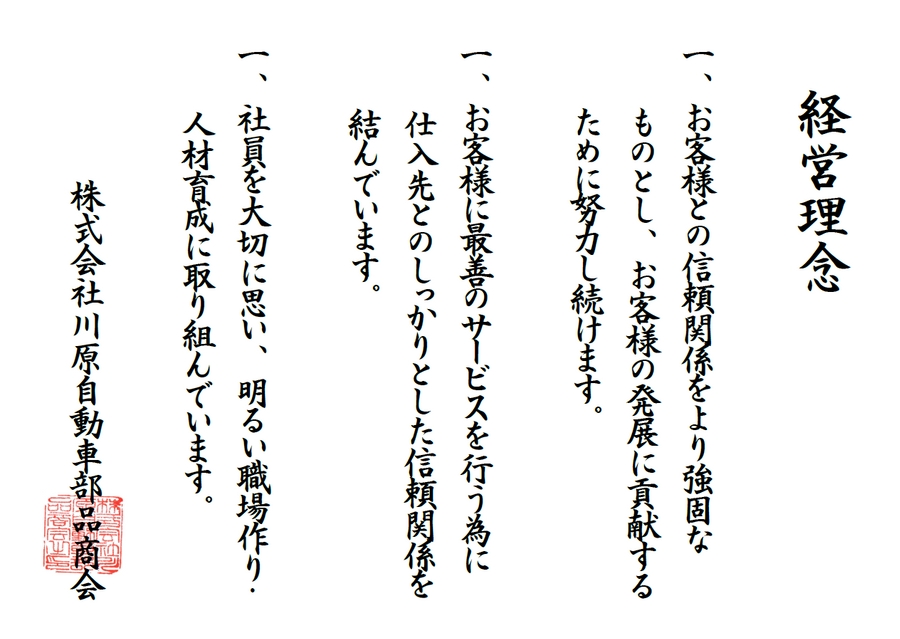 経営理念
一、お客様との信頼関係をより強固な
ものとし、お客様の発展に貢献する
ために努力し続けます。
一、お客様に最善のサービスを行う為に
仕入先とのしっかりとした信頼関係を
結んでいます。
一、社員を大切に思い、明るい職場作り・
人材育成に取り組んでいます。
株式会社川原自動車部品商会